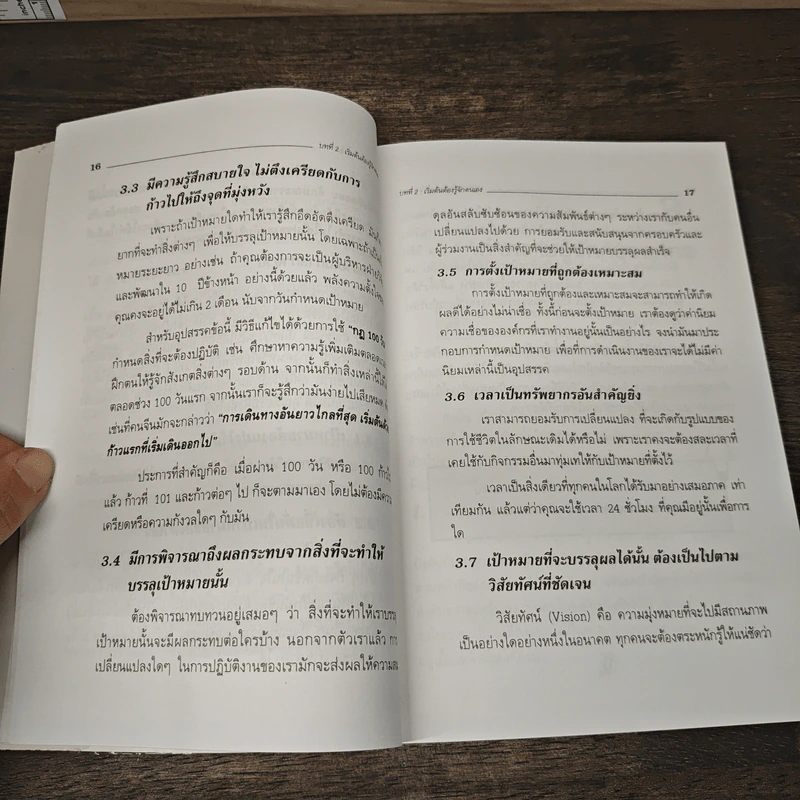 16
บทที่ 2 : เริ่มต้นต้องรู้จัก
3.3 มีความรู้สึกสบายใจ ไม่ตึงเครียดกับการ
ก้าวไปให้ถึงจุดที่มุ่งหวัง
เพราะถ้าเป้าหมายใดทำให้เรารู้สึกอึดอัดตึงเครียด
ยากที่จะทำสิ่งต่างๆ เพื่อให้บรรลุเป้าหมายนั้น โดยเฉพาะถ้าเป็น
หมายระยะยาว อย่างเช่น ถ้าคุณต้องการจะเป็นผู้บริหารฝ่าย
และพัฒนาใน 10 ปีข้างหน้า อย่างนี้ด้วยแล้ว พลังความตั้งใจ
คุณคงจะอยู่ได้ไม่เกิน 2 เดือน นับจากวันกำหนดเป้าหมาย
สำหรับอุปสรรคข้อนี้ มีวิธีแก้ไขได้ด้วยการใช้ "กฎ 100
กำหนดสิ่งที่จะต้องปฏิบัติ เช่น ศึกษาหาความรู้เพิ่มเติมตลอด
ฝึกตนให้รู้จักสังเกตสิ่งต่างๆ รอบด้าน จากนั้นก็ทำสิ่งเหล่านี้
ตลอดช่วง 100 วันแรก จากนั้นเราก็จะรู้สึกว่ามันง่ายไปเสียหมด
เช่นที่คนจีนมักจะกล่าวว่า "การเดินทางอันยาวไกลที่สุด เริ่มต้น
ก้าวแรกที่เริ่มเดินออกไป"
ประการที่สำคัญก็คือ เมื่อผ่าน 100 วัน หรือ 100
แล้ว ก้าวที่ 101 และก้าวต่อๆ ไป ก็จะตามมาเอง โดยไม่ต้องมีความ
เครียดหรือความกังวลใดๆ กับมัน
3.4 มีการพิจารณาถึงผลกระทบจากสิ่งที่จะทำให้
บรรลุเป้าหมายนั้น
ต้องพิจารณาทบทวนอยู่เสมอๆ ว่า สิ่งที่จะทำให้เราบรรลุ
เป้าหมายนั้นจะมีผลกระทบต่อใครบ้าง นอกจากตัวเราแล้ว
เปลี่ยนแปลงใดๆ ในการปฏิบัติงานของเรามักจะส่งผลให้ความ
บทที่ 2 : เริ่มต้นต้องรู้จักตนเอง
17
ดุลอันสลับซับซ้อนของความสัมพันธ์ต่างๆ ระหว่างเรากับคนอื่น
เปลี่ยนแปลงไปด้วย การยอมรับและสนับสนุนจากครอบครัวและ
ผู้ร่วมงานเป็นสิ่งสำคัญที่จะช่วยให้เป้าหมายบรรลุผลสำเร็จ
3.5 การตั้งเป้าหมายที่ถูกต้องเหมาะสม
การตั้งเป้าหมายที่ถูกต้องและเหมาะสมจะสามารถทำให้เกิด
ผลดีได้อย่างไม่น่าเชื่อ ทั้งนี้ก่อนจะตั้งเป้าหมาย เราต้องดูว่าค่านิยม
ความเชื่อขององค์กรที่เราทำงานอยู่นั้นเป็นอย่างไร จงนำมันมาประ
กอบการกำหนดเป้าหมาย เพื่อที่การดำเนินงานของเราจะได้ไม่มีค่า
นิยมเหล่านี้เป็นอุปสรรค
3.6 เวลาเป็นทรัพยากรอันสำคัญยิ่ง
เราสามารถยอมรับการเปลี่ยนแปลง ที่จะเกิดกับรูปแบบของ
การใช้ชีวิตในลักษณะเดิมได้หรือไม่ เพราะเราคงจะต้องสละเวลาที่
เคยใช้กับกิจกรรมอื่นมาทุ่มเทให้กับเป้าหมายที่ตั้งไว้
เวลาเป็นสิ่งเดียวที่ทุกคนในโลกได้รับมาอย่างเสมอภาค เท่า
เทียมกัน แล้วแต่ว่าคุณจะใช้เวลา 24 ชั่วโมง ที่คุณมีอยู่นั้นเพื่อการ
ใด
3.7 เป้าหมายที่จะบรรลุผลได้นั้น ต้องเป็นไปตาม
วิสัยทัศน์ที่ชัดเจน
วิสัยทัศน์ (Vision) คือ ความมุ่งหมายที่จะไปมีสถานภาพ
เป็นอย่างใดอย่างหนึ่งในอนาคต ทุกคนจะต้องตระหนักรู้ให้แน่ชัดว่า